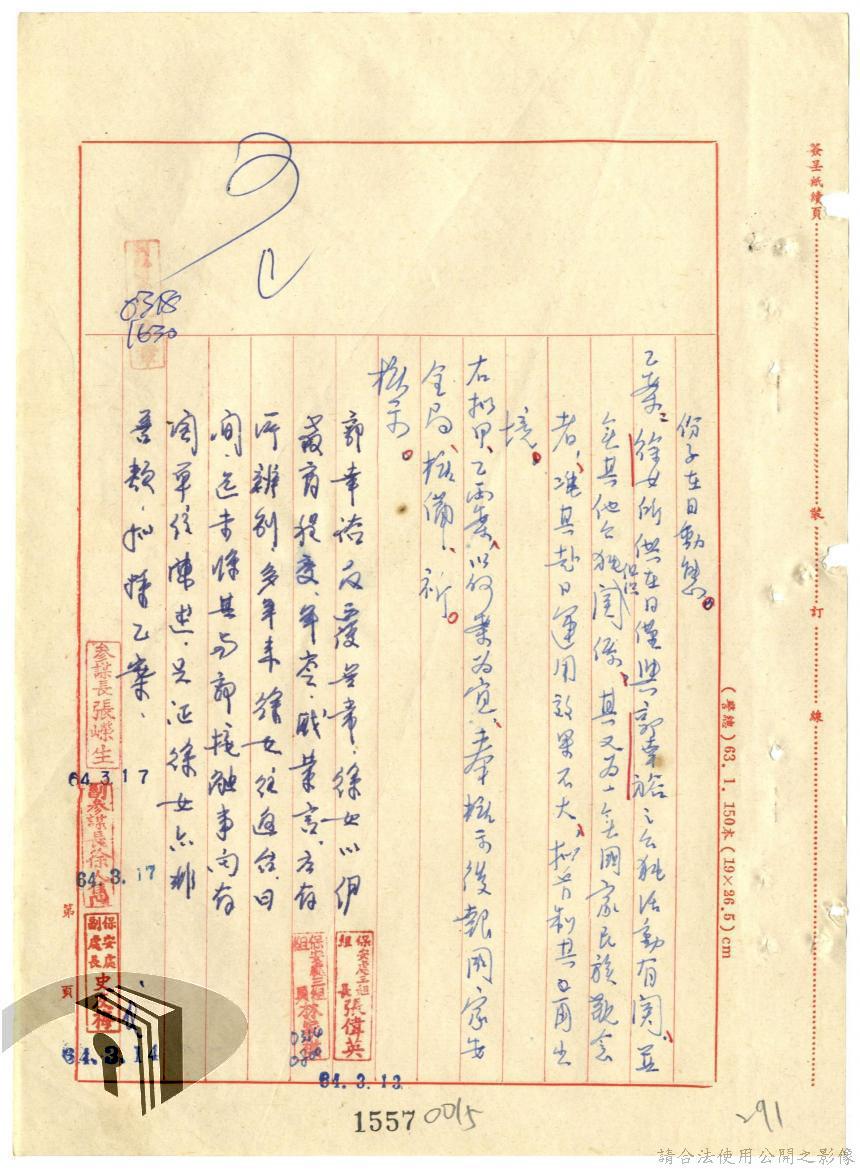 簽呈紙續頁
裝
訂
線
(警總)63.1.150本(19×26.5)cm
份子在日動態。
乙案:徐女所供在日僅與郭幸裕之台獨活動有關,並
無其他台獨組織關係,其又為一無國家民族觀念
者,准其赴日運用效果不大,擬管制其出
境。
右擬甲、乙兩案,以何案為宜,奉核示後報國家安
全局核備,祈
核示。
郭幸裕反覆無常,徐女以伊
教育程度、年空、職業言,應有
所辨別,多年來徐女往返台、日
間,迄未將其與郭接觸事向有
關單位陳述,足證徐女亦非
善類,擬採乙案。
可
0318
1630
參謀長張嶸生
64.3.17
副參謀長徐
64.3.17
保安處副處長史
64.3.14
保安處三組組長張偉英
保安處三組組員林
0314
64.3.13
第
頁
1557
0015
291
請合法使用公開之影像